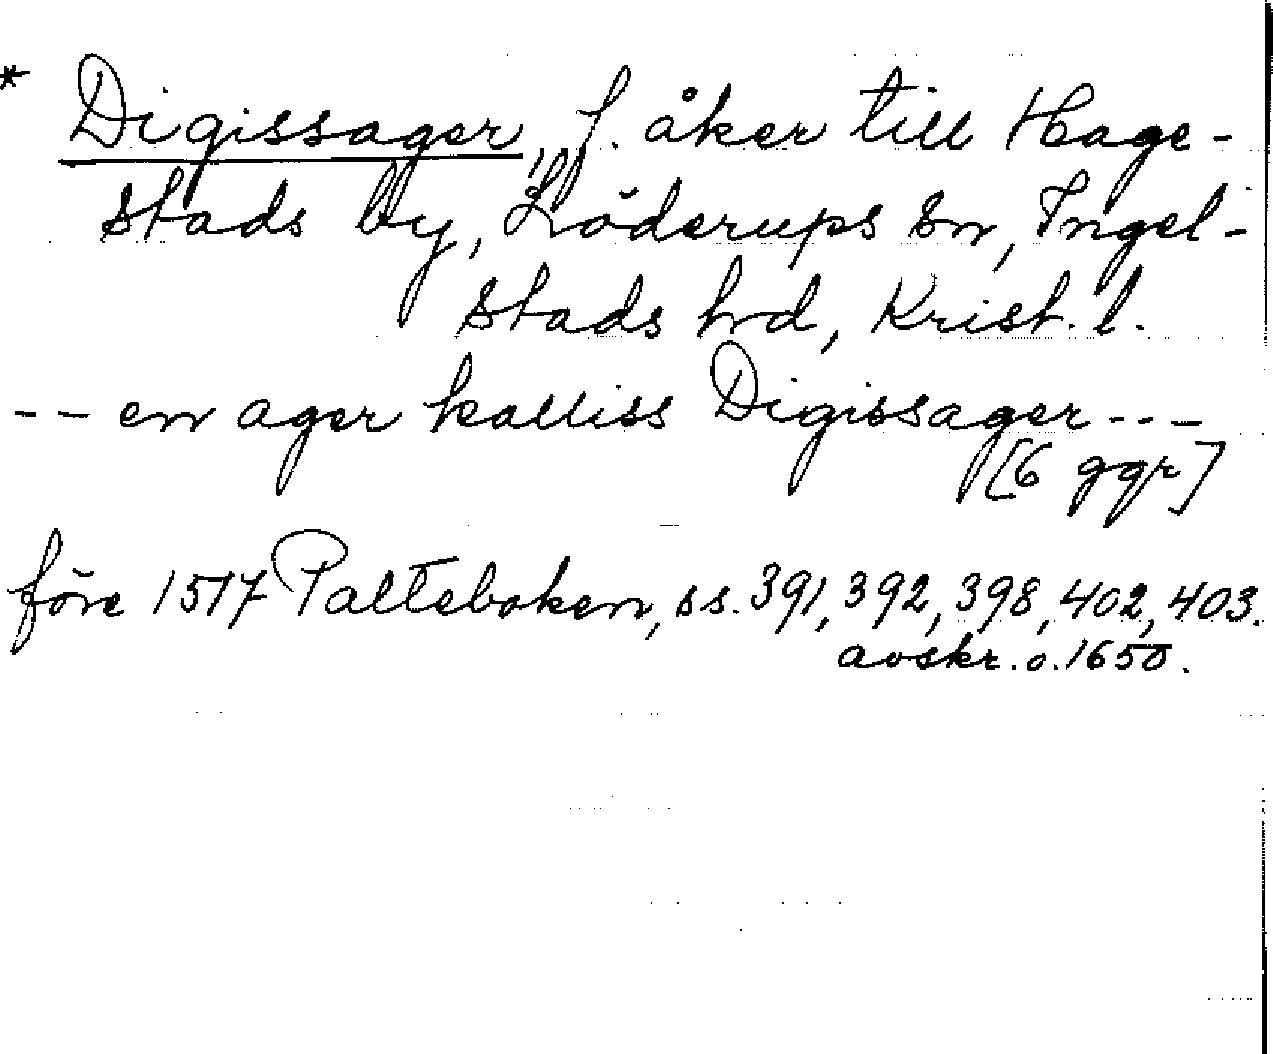 * Digissager, f. åker till Hage-
stads by, Löderups sn, Ingel-
stads hd, Krist. l.
-- en ager kalliss Digissager ---
[6 ggr]
före 1517 Palteboken, ss. 391, 392, 398, 402, 403.
avskr. o. 1650.